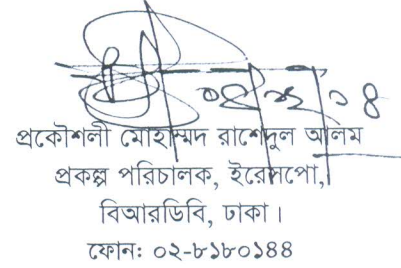 প্রকৌশলী মোহাম্মদ রাশেদুল আলম
প্রকল্প পরিচালক, ইরেসপো,
বিআরডিবি, ঢাকা।
ফোনঃ ০২-৮১৮০১৪৪